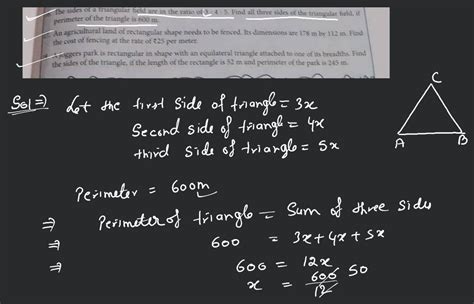 The sides of a triangular field are in the ratio of 3 : 4 : 5. Find all three sides of the triangular field, if
perimeter of the triangle is 600 m.
An agricultural land of rectangular shape needs to be fenced. Its dimensions are 178 m by 112 m. Find
the cost of fencing at the rate of ₹25 per meter.
Joggers park is rectangular in shape with an equilateral triangle attached to one of its breadths. Find
the sides of the triangle, if the length of the rectangle is 52 m and perimeter of the park is 245 m.
Sol ⇒ Let the first side of triangle = 3x
Second side of triangle = 4x
third side of triangle = 5x
C
A B
Perimeter = 600m
⇒ Perimeter of triangle = Sum of three sides
⇒ 600 = 3x + 4x + 5x
⇒ 600 = 12x
x = 600 50
12